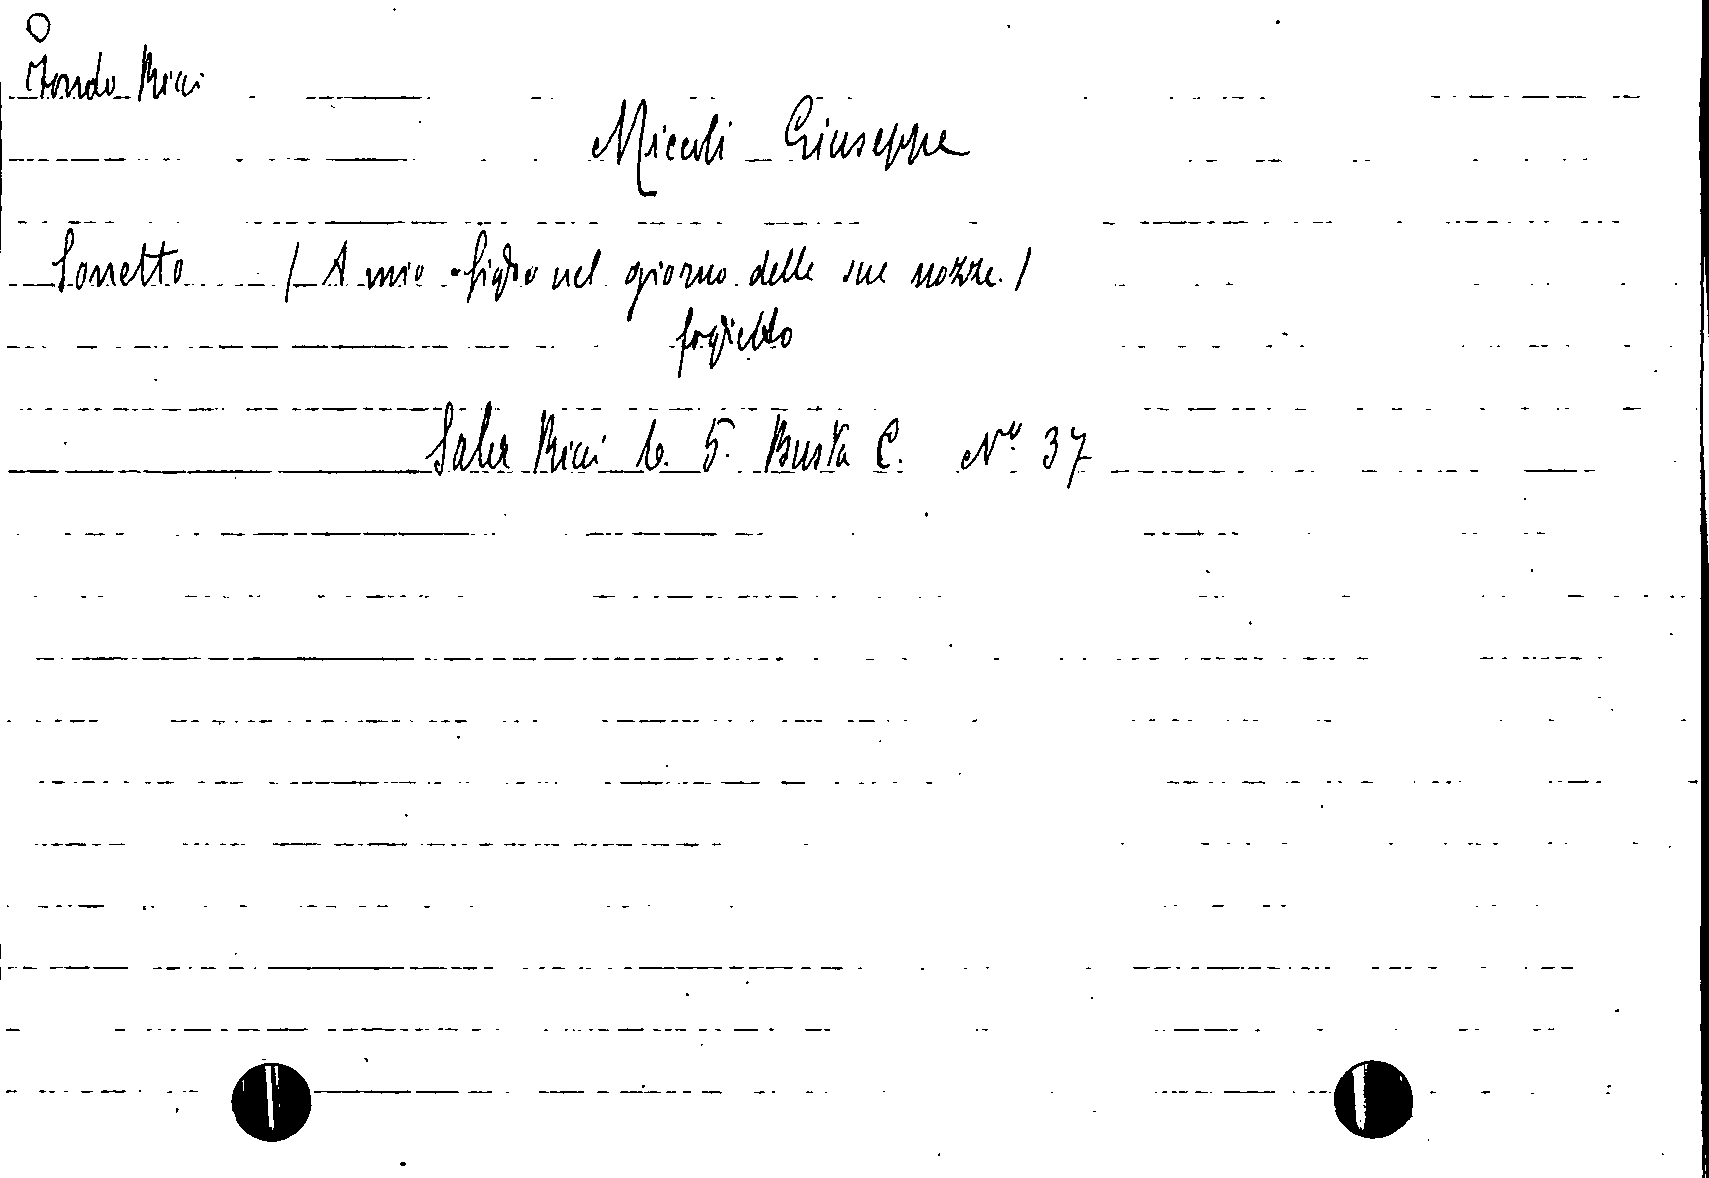 Fondo Ricci
Miccoli Giuseppe
Sonetto / A mio figlio nel giorno delle sue nozze. /
foglietto
Sala Ricci b. 5. Busta C. Nº 37